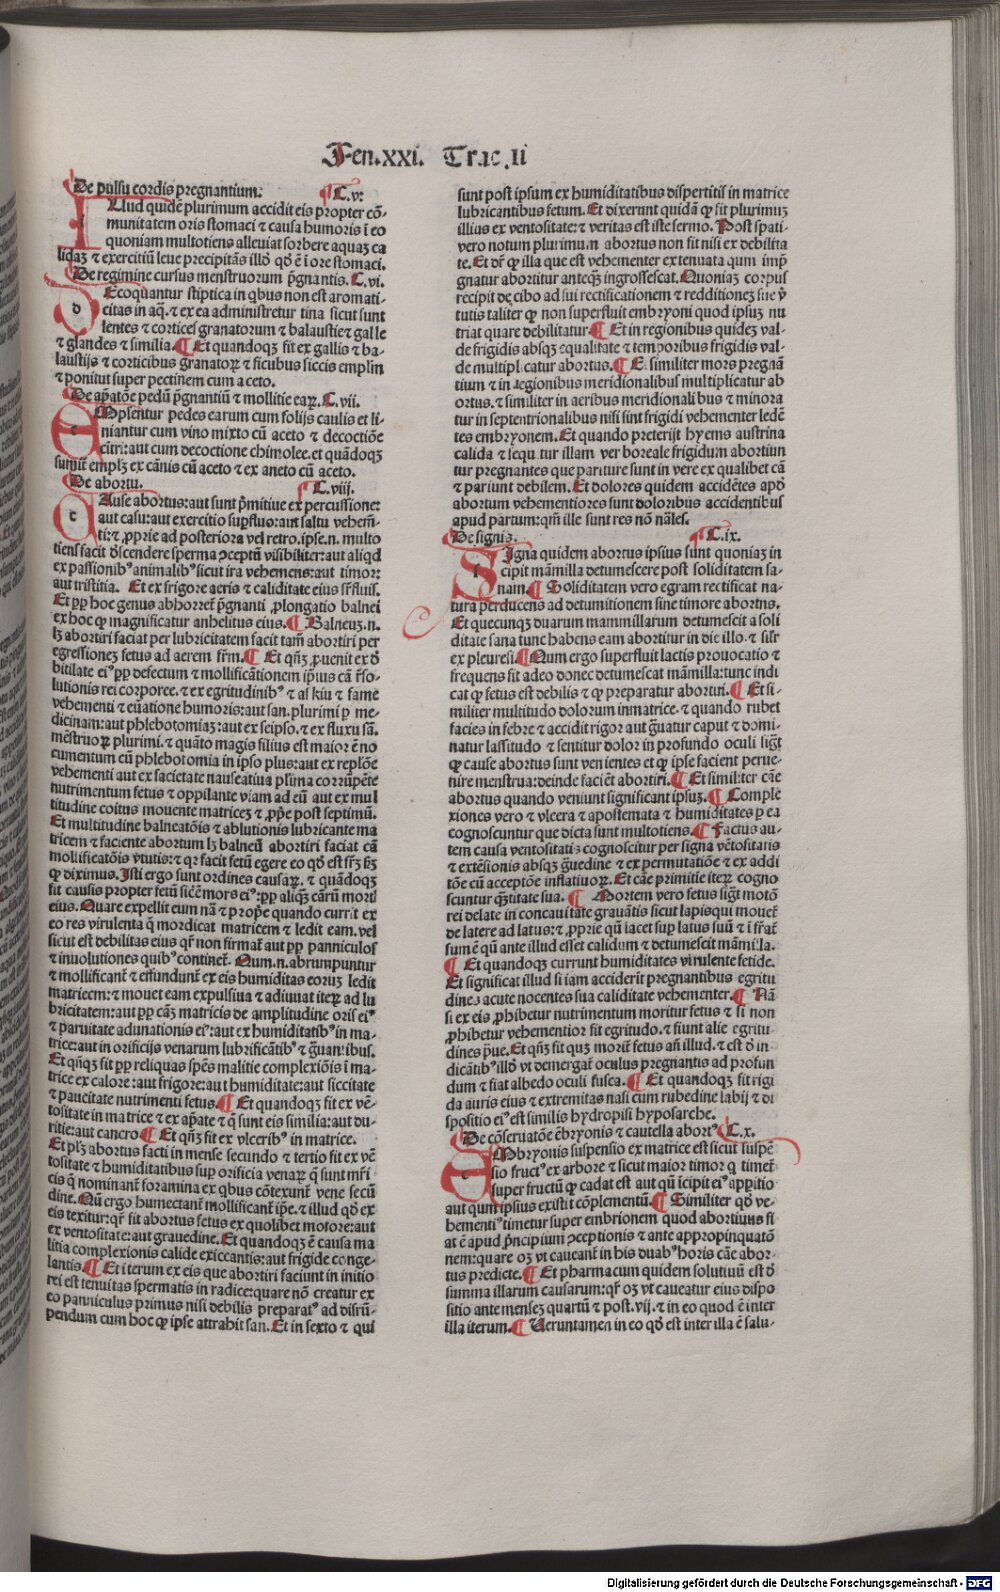 Fen.xxi. Trac.ii
De pulsu cordis pregnantium. ¶ C.v.
Illud quidē plurimum accidit eis propter cō-
munitatem oris stomaci ⁊ causa humoris ī eo
quoniam multotiens alleuiat sorbere aquaʒ ca
lidaʒ ⁊ exercitiū leue precipitās illd̓ qd̓ ē ī ore stomaci.
De regimine cursus menstruorum p̄gnantis. C.vi.
dEcoquantur stiptica in qbus non est aromati-
citas in aq̄. ⁊ ex ea administretur tina sicut sunt
lentes ⁊ cortices granatorum ⁊ balaustie ⁊ galle
⁊ glandes ⁊ similia. ¶ Et quandoqʒ fit ex gallis ⁊ ba-
laustijs ⁊ corticibus granatoꝝ ⁊ ficubus siccis emplm̄
⁊ ponitur super pectinem cum aceto.
De ap̄atōe pedū p̄gnantiū ⁊ mollitie eaꝝ. C.vii.
eMplentur pedes earum cum folijs caulis et li-
niantur cum vino mixto cū aceto ⁊ decoctiōe
citri: aut cum decoctione chimolee. et quādoqʒ
sumūt emplʒ ex cānis cū aceto ⁊ ex aneto cū aceto.
De abortu. C.viii.
cAuse abortus: aut sunt p̄mitiue ex percussione:
aut casu: aut exercitio suꝑfluo: aut saltu vehem̄-
ti: ⁊ ꝓprie ad posteriora vel retro. ipse.n. multo
tiens facit d̓scendere sperma ꝯceptū visibiliter: aut aliqd
ex passionibꝰ animalibꝰ sicut ira vehemens: aut timor:
aut tristitia. Et ex frigore aeris ⁊ caliditate eius sr̄fluis.
Et pp̄ hoc genus abhorret p̄gnanti ꝓlongatio balnei
ex hoc ꝙ magnificatur anhelitus eius. ¶ Balneuʒ.n.
lʒ abortiri faciat per lubricitatem facit tam̄ abortiri per
egressioneʒ fetus ad aerem fr̄m. ¶ Et qn̄ʒ ꝓuenit ex d̓
bilitate eiꝰ pp̄ defectum ⁊ mollificātionem ip̄ius cā r̄so-
lutionis rei corporee. ⁊ ex egritudinibꝰ ⁊ ⁊ fame
vehementi ⁊ eūatione humoris: aut san. plurimi ꝑ me-
dicinam: aut phlebotomiaʒ: aut ex seipso. ⁊ ex fluxu sā.
mēstruoꝝ plurimi. ⁊ quāto magis filius est maior ē no
cumentum cū phlebotomia in ipso plus: aut ex replōe
vehementi aut ex societate nauseatiua plima corrūpēte
nutrimentum fetus ⁊ oppilante viam ad eū aut ex mul
titudine coitus mouente matriceʒ ⁊ ꝓp̄e post septimū.
Et multitudine balneatōis ⁊ ablutionis lubricante ma
tricem ⁊ faciente abortum lʒ balneū abortiri faciat cā
mollificatōis v̓tutis: ⁊ qr facit fetū egere eo qd̓ est
ꝙ diximus. Isti ergo sunt ordines causaꝝ. ⁊ quādoqʒ
fit causis propter fetū sic̄ mors eiꝰ: pp̄ aliqʒ cārū morl
eius. Quare expellit eum nā ⁊ prop̄e quando currit ex
eo res virulenta q̄ mordicat matricem ⁊ ledit eam. vel
sicut est debilitas eius qr̄ non firmat̄ aut pp̄ panniculos
⁊ inuolutiones quibꝰ continet̄. Qum.n. abrumpuntur
⁊ mollificant̄ ⁊ effundunt̄ ex eis humiditas eoruʒ ledit
matricem: ⁊ mouet eam expulsiua ⁊ adiuuat iteꝝ ad lu
bricitatem: aut pp̄ cāʒ matricis de amplitudine oris eiꝰ
⁊ paruitate adunationis eiꝰ: aut ex humiditatibꝰ in ma-
trice: aut in orificijs venarum lubrificātibꝰ ⁊ gr̄antibus.
Et qn̄qʒ fit pp̄ reliquas sp̄es malitie complexiōis ī ma-
trice ex calore: aut frigore: aut humiditate: aut siccitate
⁊ paucitate nutrimenti fetus. ¶ Et quandoqʒ fit ex vē-
tositate in matrice ⁊ ex ap̄ate ⁊ q̄ sunt eis similia: aut du-
ritie: aut cancro ¶ Et qn̄ʒ fit ex vlceribꝰ in matrice.
Et plʒ abortus facti in mense secundo ⁊ tertio fit ex vē
tositate ⁊ humiditatibus sup orificia venaꝝ q̄ sunt mr̄i
cis q̄ nominant̄ foramina ex qbus cōtexunt̄ vene secū
dine. Nū ergo humectant̄ mollificant̄ ip̄e. ⁊ illud qd̓ ex
eis texitur: qr̄ fit abortus fetus ex quolibet motore: aut
ex ventositate: aut grauedine. Et quandoqʒ ē causa ma
litia complexionis calide exiccantis: aut frigide conge-
lantis. ¶ Et iterum ex eis que abortiri faciunt in initio
rei est tenuitas spermatis in radice: quare nō creatur ex
eo panniculus primus nisi debilis preparatꝰ ad disrū-
pendum cum hoc ꝙ ipse attrahit san. Et in sexto ⁊ qui
sunt post ipsum ex humiditatibus dispertitis in matrice
lubricantibus fetum. Et dixerunt quidā ꝙ sit plurimuʒ
illius ex ventositate: ⁊ veritas est iste sermo. Post spati-
vero notum plurimum abortus non fit nisi ex debilita
te. Et dr̄ ꝙ illa que est vehementer extenuata qum imp̄
gnatur abortitur anteqʒ ingrossescat. Quoniaʒ corpus
recipit de cibo ad sui rectificationem ⁊ redditioneʒ sue v̓
tutis taliter ꝙ non superfluit embryoni quod ipsuʒ nu
triat quare debilitatur ¶ Et in regionibus quideʒ val-
de frigidis absqʒ equalitate ⁊ temporibus frigidis val-
de multiplicatur abortus. ¶ Et similiter mors pregnā
tium ⁊ in regionibus meridionalibus multiplicatur ab
ortus. ⁊ similiter in aeribus meridionalibus ⁊ minora
tur in septentrionalibus nisi sint frigidi vehementer ledē
tes embryonem. Et quando preterijt hyems austrina
calida ⁊ sequitur illam ver boreale frigidum abortiun
tur pregnantes que pariture sunt in vere ex qualibet cā
⁊ pariunt debilem. Et dolores quidem accidētes apd̓
abortum vehementiores sunt doloribus accidentibus
apud partum: qm̄ ille sunt res nō nāles.
De signis. ¶ C.ix.
sIgna quidem abortus ipsius sunt quoniaʒ in
cipit māmilla detumescere post soliditatem sa-
nam. ¶ Soliditatem vero egram rectificat na-
tura perducens ad detumitionem sine timore abortus.
Et quecunqʒ duarum mammillarum detumescit a soli
ditate sana tunc habens eam abortitur in die illo. ⁊ silr̄
ex pleuresi. ¶ Num ergo superfluit lactis prouocatio ⁊
frequens fit adeo donec detumescat māmilla: tunc indi
cat ꝙ fetus est debilis ⁊ ꝙ preparatur abortui. ¶ Et si-
militer multitudo dolorum in matrice. ⁊ quando rubet
facies in febre ⁊ accidit rigor aut gr̄atur caput ⁊ domi-
natur lassitudo ⁊ sentitur dolor in profundo oculi sigt̄
ꝙ cause abortus sunt venientes et ꝙ ipse facient perue-
nire menstrua: deinde faciēt abortiri. ¶ Et similiter cāe
abortus quando veniunt significant ipsuʒ. ¶ Comple
xiones vero ⁊ vlcera ⁊ apostemata ⁊ humiditates ꝑ ea
cognoscuntur que dicta sunt multotiens. ¶ Factus au-
tem causa ventositatis cognoscitur per signa vētositatis
⁊ extēsionis absqʒ gr̄uedine ⁊ ex permutatiōe ⁊ ex addi
tōe cū acceptōe inflatiuoꝝ. Et cāe primitie iteꝝ cogno
scuntur q̄titate sua. ¶ Mortem vero fetus sigt̄ motō
rei delate in concauitate grauātis sicut lapis qui mouet̄
de latere ad latus: ⁊ ꝓprie qū iacet sup latus suū ⁊ ī fr̄at
sumē qū ante illud esset calidum ⁊ detumescit māmilla.
¶ Et quandoqʒ currunt humiditates virulente fetide.
Et significat illud si iam acciderit pregnantibus egritu
dineʒ acute nocentes sua caliditate vehementer. ¶ Nā
si ex eis ꝓhibetur nutrimentum moritur fetus ⁊ si non
ꝓhibetur vehementior fit egritudo. ⁊ fiunt alie egritu-
dines p̄ue. Et qn̄ʒ fit quʒ morit̄ fetus añ illud. ⁊ est d̓ in-
dicātibꝰ illd̓ vt demergat̄ oculus pregnantis ad profun
dum ⁊ fiat albedo oculi fusca. ¶ Et quandoqʒ fit rigi
da auris eius ⁊ extremitas nasi cum rubedine labij ⁊ di
spositio eiꝰ est similis hydropisi hyposarche.
De cōseruatōe ēbryonis ⁊ cautella abortꝰ. C.x.
eMbryonis suspensio ex matrice est sicut suspē
sio fructꝰ ex arbore ⁊ sicut maior timor q̄ timet̄
super fructū ꝙ cadat est aut qū īcipit eiꝰ appitio
aut qum ipsius existit cōplementū. ¶ Similiter qd̓ ve-
hementiꝰ timetur super embrionem quod abortiuus fi
at ē apud p̄ncipium ꝯceptionis ⁊ ante appropinquatō
nem: quare oʒ vt caueant̄ in his duabꝰ horis cāe abor-
tus predicte. ¶ Et pharmacum quidem solutiuū est d̓
summa illarum causarum: qr̄ oʒ vt caueatur eius dispo
sitio ante menseʒ quartū ⁊ post.vij. ⁊ in eo quod ē inter
illa iterum. ¶ Veruntamen in eo qd̓ est inter illa ē salu-
Digitalisierung gefördert durch die Deutsche Forschungsgemeinschaft - DFG